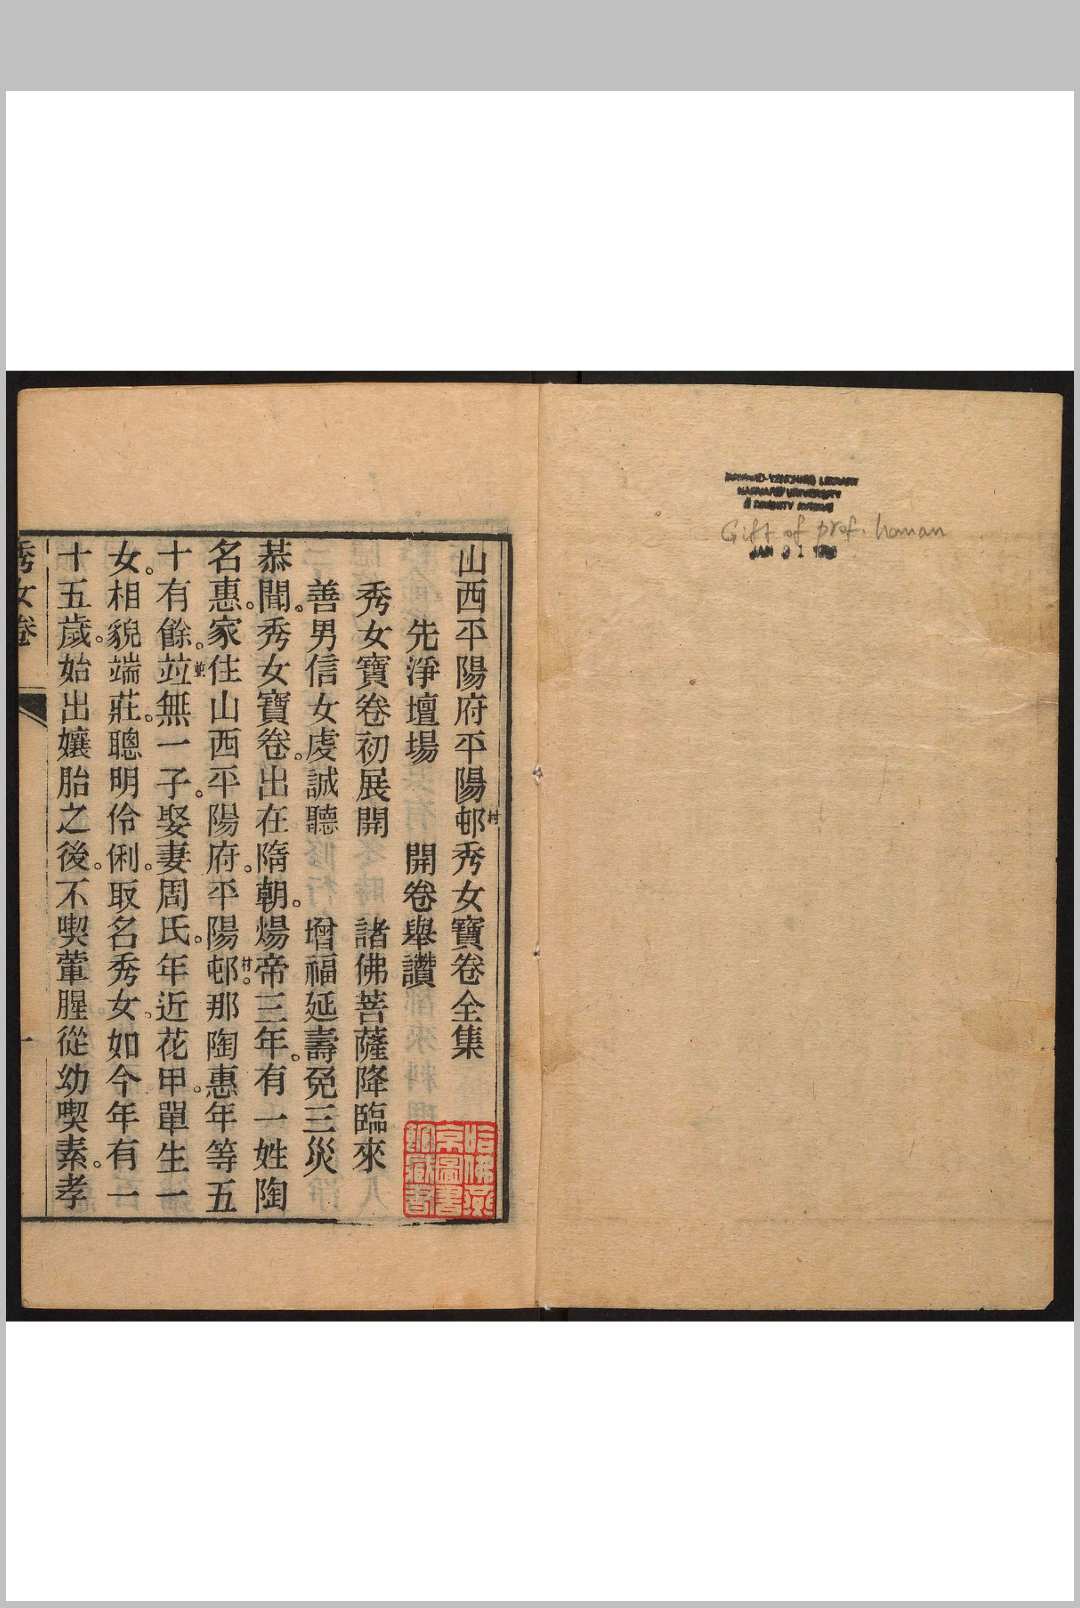 HARVARD-YENCHING LIBRARY
HARVARD UNIVERSITY
2 DIVINITY AVENUE
Gift of prof. Hanan
JAN 21
山西平陽府平陽邨秀女寶卷全集
村
先淨壇場 開卷舉讚
秀女寶卷初展開 諸佛菩薩降臨來
善男信女虔誠聽 增福延壽免三災
恭聞。秀女寶卷。出在隋朝。煬帝三年。有一姓陶
名惠。家住山西平陽府。平陽邨。那陶惠年等五
村
十有餘。竝無一子。娶妻周氏。年近花甲。單生一
並
女。相貌端莊。聰明伶俐。取名秀女。如今年有一
十五歲。始出孃胎之後。不喫葷腥從幼喫素。孝
秀女卷
一
哈佛燕
京圖書
館藏書